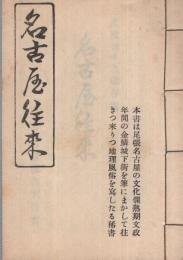 名古屋往来
本書は尾張名古屋の文化爛熟期文政
年間の金鯱城下街を筆にまかして往
きつ来りつ地理風俗を写したる稀書